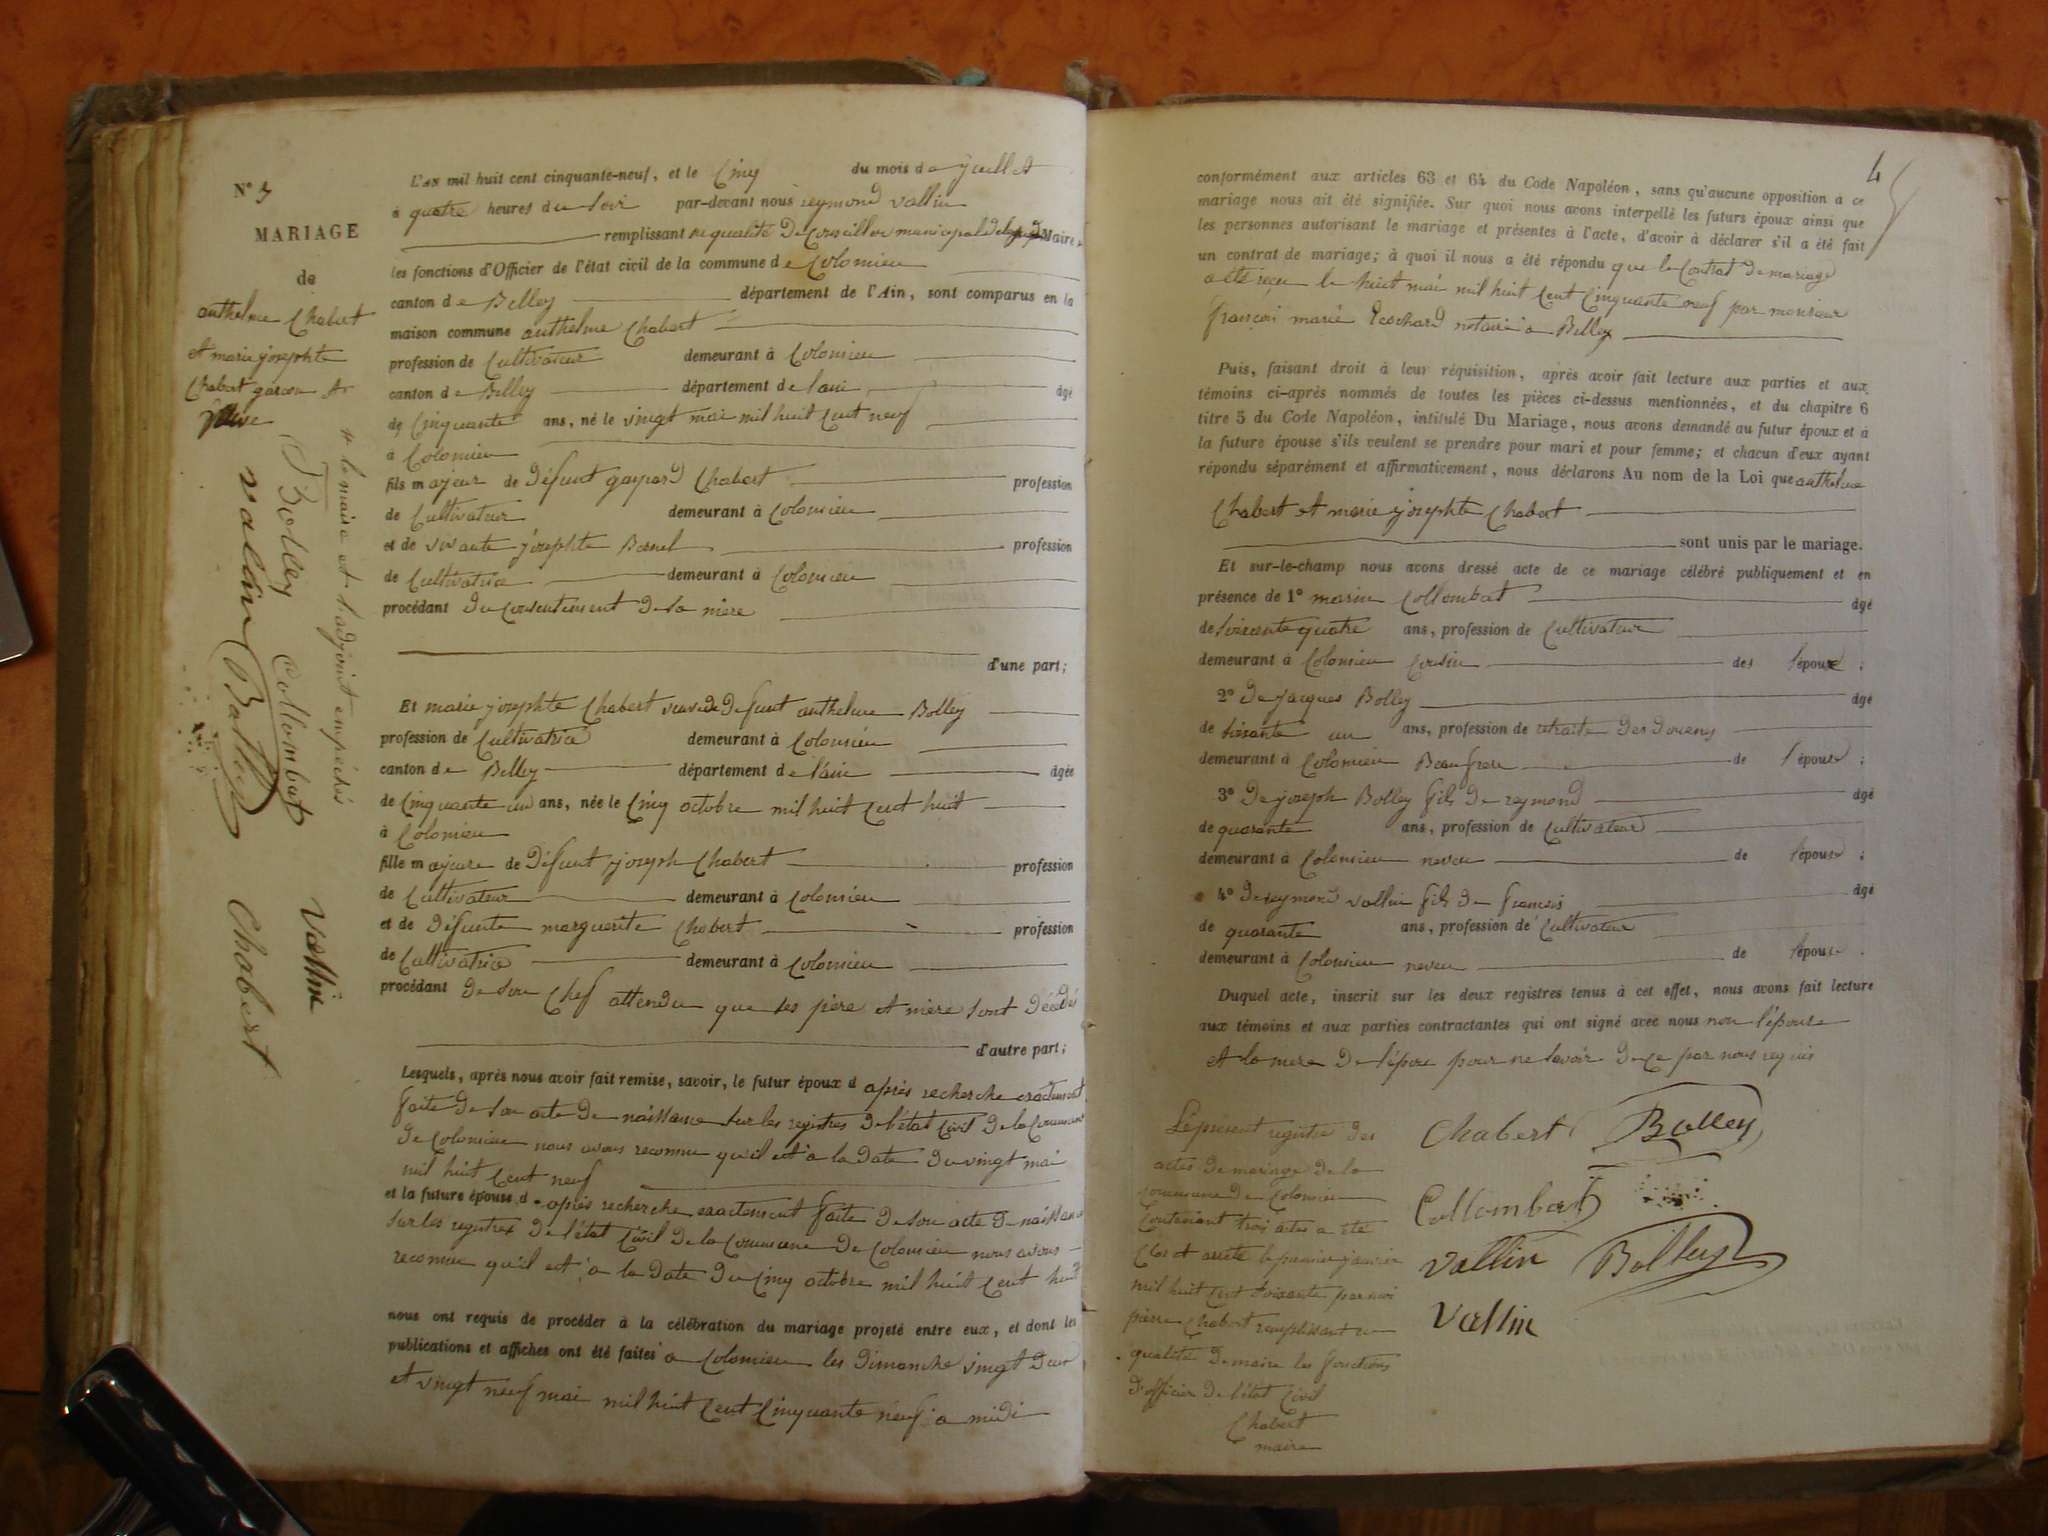 N° 3
MARIAGE
de
anthelme Chabert
et marie josephte
Chabert garcon et
veuve
le maire et l'adjoint empéchés
Bolley Collombat Vallin
vallin Bolley Chabert
L'an mil huit cent cinquante-neuf, et le Cinq du mois de juillet
à quatre heures du soir par-devant nous reymond vallin
remplissant en qualité de conseiller municipal Maire
les fonctions d'Officier de l'état civil de la commune de Colomieu
canton de Belley département de l'Ain, sont comparus en la
maison commune anthelme Chabert
profession de Cultivateur demeurant à Colomieu
canton de Belley département de l'ain âgé
de Cinquante ans, né le vingt mai mil huit cent neuf
à Colomieu
fils majeur de défunt gaspard Chabert profession
de Cultivateur demeurant à Colomieu
et de vivante josephte profession
de Cultivatrice demeurant à Colomieu
procédant du consentement de sa mère
d'une part;
Et marie josephte Chabert veuve de defunt anthelme Bolley
profession de Cultivatrice demeurant à Colomieu
canton de Belley département de l'ain âgée
de Cinquante un ans, née le Cinq octobre mil huit cent huit
à Colomieu
fille majeure de défunt joseph Chabert profession
de Cultivateur demeurant à Colomieu
et de défunte marguerite Chabert profession
de Cultivatrice demeurant à Colomieu
procédant de son chef attendu que ses père et mère sont décédés
d'autre part;
Lesquels, après nous avoir fait remise, savoir, le futur époux d après recherche exactement
faite de son acte de naissance sur les registres de l'état Civil de la Commune
de Colomieu nous avons reconnu qu'il est à la date du vingt mai
mil huit cent neuf
et la future épouse d après recherche exactement faite de son acte de naissance
sur les registres de l'état Civil de la Commune de Colomieu nous avons
reconnu qu'il est à la date du Cinq octobre mil huit cent huit
nous ont requis de procéder à la célébration du mariage projeté entre eux, et dont les
publications et affiches ont été faites à Colomieu les dimanche vingt deux
et vingt neuf mai mil huit cent cinquante neuf à midi
4
conformément aux articles 63 et 64 du Code Napoléon, sans qu'aucune opposition à ce
mariage nous ait été signifiée. Sur quoi nous avons interpellé les futurs époux ainsi que
les personnes autorisant le mariage et présentes à l'acte, d'avoir à déclarer s'il a été fait
un contrat de mariage; à quoi il nous a été répondu que le Contrat de mariage
a été reçu le huit mai mil huit cent cinquante neuf par monsieur
françois marie notaire à Belley
Puis, faisant droit à leur réquisition, après avoir fait lecture aux parties et aux
témoins ci-après nommés de toutes les pièces ci-dessus mentionnées, et du chapitre 6
titre 5 du Code Napoléon, intitulé Du Mariage, nous avons demandé au futur époux et à
la future épouse s'ils veulent se prendre pour mari et pour femme; et chacun d'eux ayant
répondu séparément et affirmativement, nous déclarons Au nom de la Loi que anthelme
Chabert et marie josephte Chabert
sont unis par le mariage.
Et sur-le-champ nous avons dressé acte de ce mariage célébré publiquement et en
présence de 1° Collombat âgé
de soixante quatre ans, profession de Cultivateur
demeurant à Colomieu cousin des l'épouse ;
2° de jacques Bolley âgé
de soixante un ans, profession de retraité des douens
demeurant à Colomieu Beaufrere de l'épouse ;
3° de joseph Bolley fils de reymond âgé
de quarante ans, profession de Cultivateur
demeurant à Colomieu neveu de l'épouse ;
4° de reymond vallin fils de francois âgé
de quarante ans, profession de Cultivateur
demeurant à Colomieu neveu de l'épouse .
Duquel acte, inscrit sur les deux registres tenus à cet effet, nous avons fait lecture
aux témoins et aux parties contractantes qui ont signé avec nous non l'épouse
et la mere de l'époux pour ne savoir de ce par nous requis
Chabert Bolley
Collombat
Vallin Bolley
Vallin
Le présent registre des
actes de mariage de la
commune de Colomieu
Contenant trois actes a été
Clos et arrêté le premier janvier
mil huit cent soixante par moi
pierre Chabert remplissant en
qualité de maire les fonctions
d'officier de l'état Civil
Chabert
maire